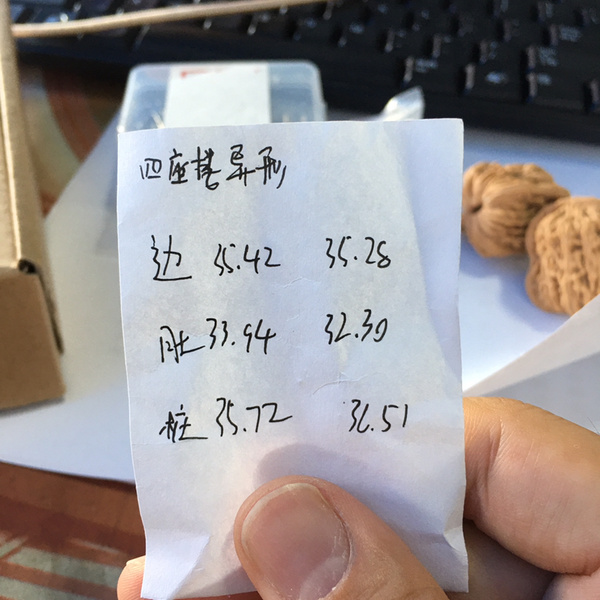 四座楼异形
边 35.42 35.28
肚 33.94 32.30
桩 35.72 36.51